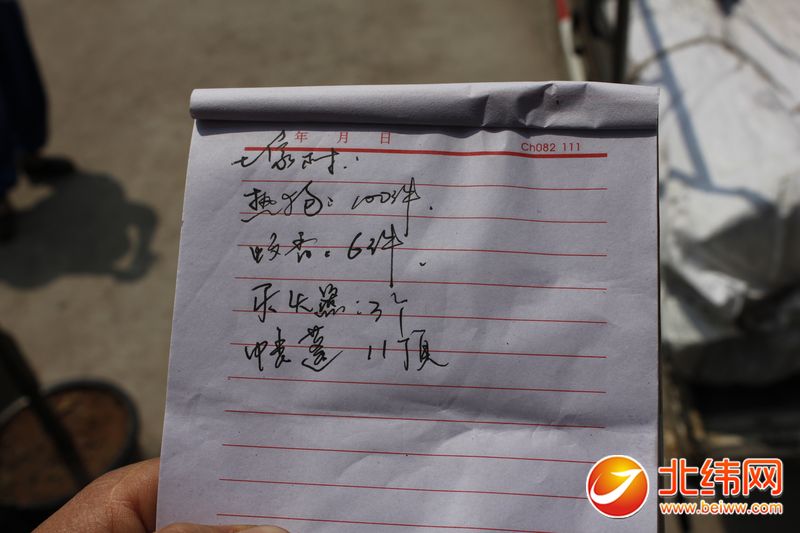 年 月 日
Ch082 111
七家村:
100件.
蚊香: 6件.
灭火器: 3个
帐蓬 11顶
北纬网
www.beiww.com